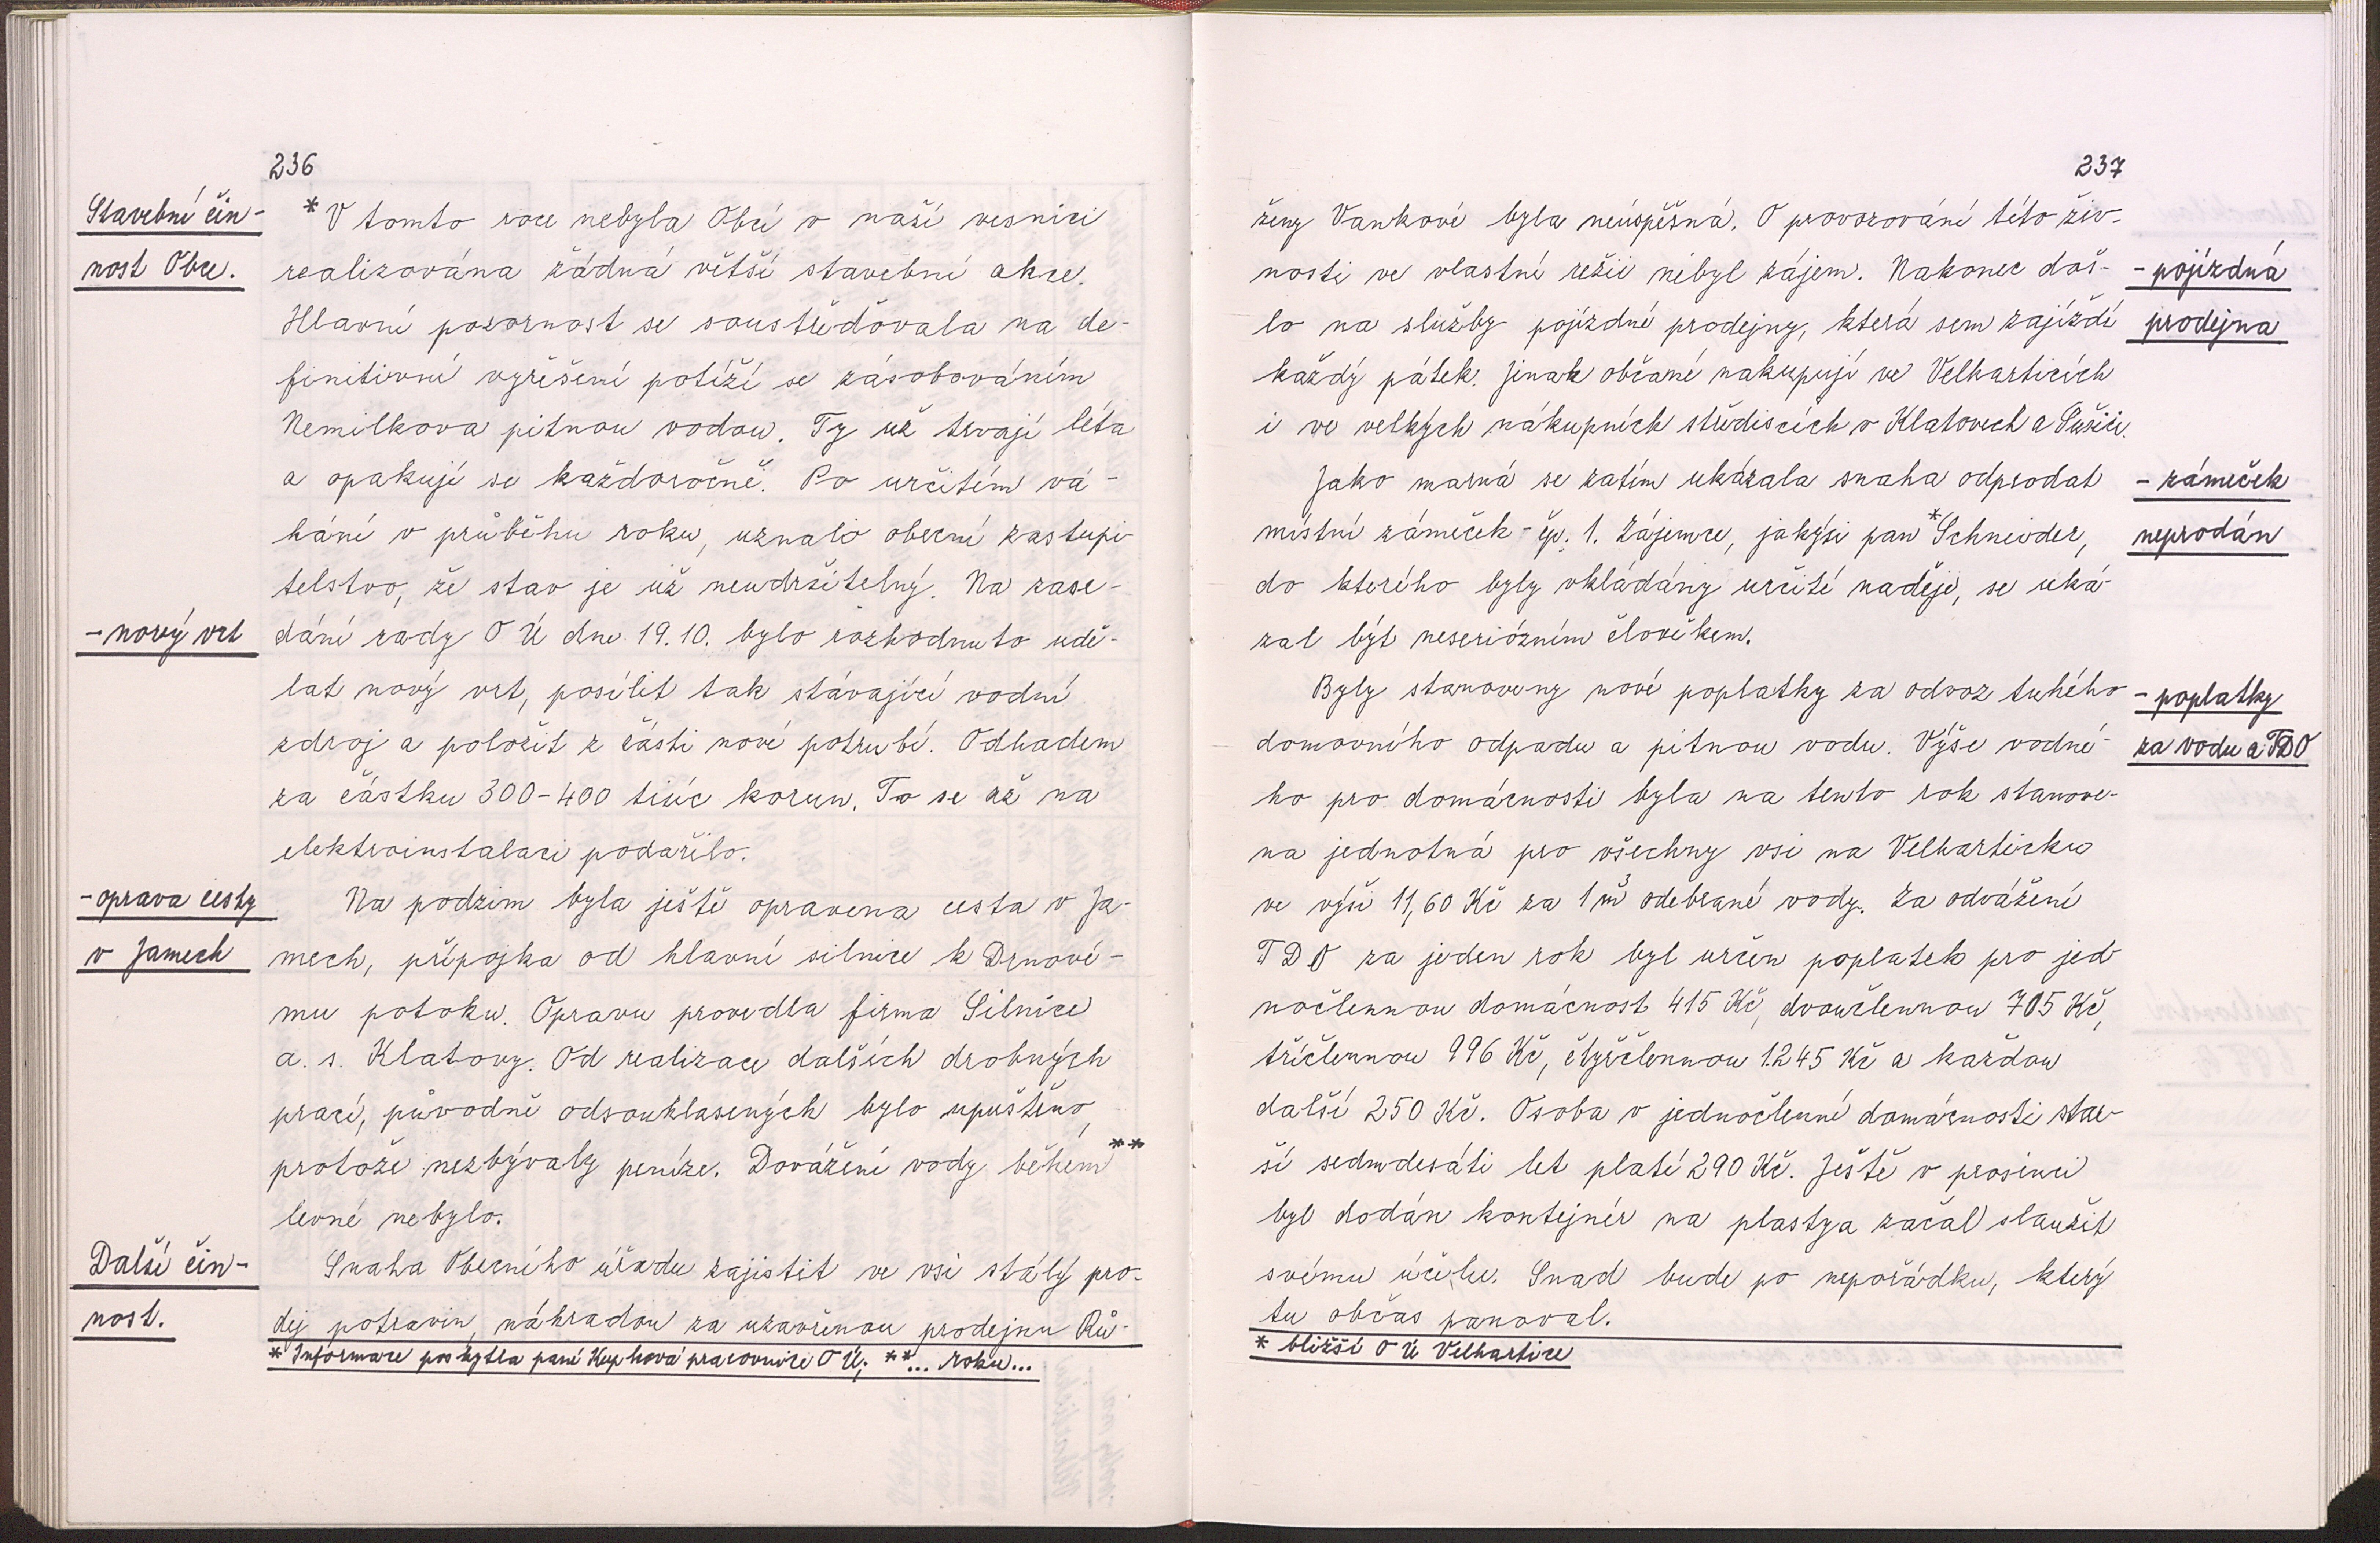 236
Stavební čin-
nost Obce.
* V tomto roce nebyla Obcí v naší vesnici
realizována žádná větší stavební akce.
Hlavní pozornost se soustřeďovala na de-
finitivní vyřešení potíží se zásobováním
Nemilkova pitnou vodou. Ty už trvají léta
a opakují se každoročně. Po určitém vá-
hání v průběhu roku, uznalo obecní zastupi-
telstvo, že stav je už neudržitelný. Na zase-
- nový vrt
dání rady O Ú dne 19.10. bylo rozhodnuto udě-
lat nový vrt, posílit tak stávající vodní
zdroj a položit z části nové potrubí. Odhadem
za částku 300-400 tisíc korun. To se až na
elektroinstalaci podařilo.
- oprava cesty
v Jamech
Na podzim byla ještě opravena cesta v Ja-
mech, přípojka od hlavní silnice k Drnové-
mu potoku. Opravu provedla firma Silnice
a. s. Klatovy. Od realizace dalších drobných
prací, původně odsouhlasených bylo upuštěno,
protože nezbývaly peníze. Dovážení vody během**
levné nebylo.
Další čin-
nost.
Snaha Obecního úřadu zajistit ve vsi stálý pro-
dej potravin, náhradou za uzavřenou prodejnu Rů-
* Informace poskytla paní Kuphová pracovnice O Ú; **... roku...
237
ženy Vankové byla neúspěšná. O provozování této živ-
nosti ve vlastní režii nebyl zájem. Nakonec doš-
lo na služby pojízdné prodejny, která sem zajíždí
každý pátek. Jinak občané nakupují ve Velharticích
i ve velkých nákupních střediscích v Klatovech a Sušici.
- pojízdná
prodejna
Jako marná se zatím ukázala snaha odprodat
místní zámeček - čp. 1. Zájemce, jakýsi pan *Schneider,
do kterého byly vkládány určité naděje, se uká-
zal být neseriózním člověkem.
- zámeček
neprodán
Byly stanoveny nové poplatky za odvoz tuhého
domovního odpadu a pitnou vodu. Výše vodné-
ho pro domácnosti byla na tento rok stanove-
na jednotná pro všechny vsi na Velharticku
ve výši 11,60 Kč za 1 m³ odebrané vody. Za odvážení
TDO za jeden rok byl určen poplatek pro jed-
nočlennou domácnost 415 Kč, dvoučlennou 705 Kč,
tříčlennou 996 Kč, čtyřčlennou 1.245 Kč a každou
další 250 Kč. Osoba v jednočlenné domácnosti star-
ší sedmdesáti let platí 290 Kč. Ještě v prosinci
byl dodán kontejnér na plasty a začal sloužit
svému účelu. Snad bude po nepořádku, který
tu občas panoval.
- poplatky
za vodu a TDO
* bližší O Ú Velhartice